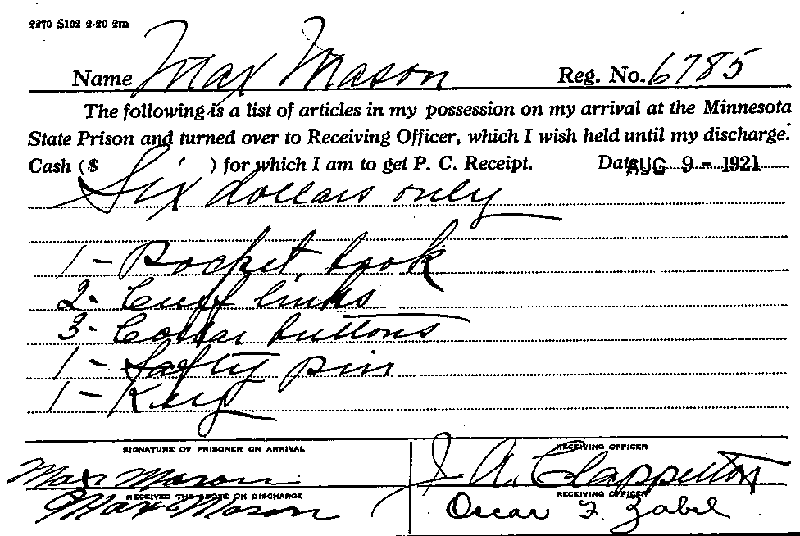 2270 S102 2-20 2m
Name Max Mason Reg. No. 6785
The following is a list of articles in my possession on my arrival at the Minnesota
State Prison and turned over to Receiving Officer, which I wish held until my discharge.
Cash ($ ) for which I am to get P. C. Receipt. Date AUG 9 - 1921
Six dollars only
1 - Pocket book
2 - Cuff links
3 - Collar buttons
1 - Safty pin
1 - Key
SIGNATURE OF PRISONER ON ARRIVAL RECEIVING OFFICER
Max Mason J A. Clapperton
RECEIVED THE ABOVE ON DISCHARGE RECEIVING OFFICER
Max Mason Oscar F. Zabel